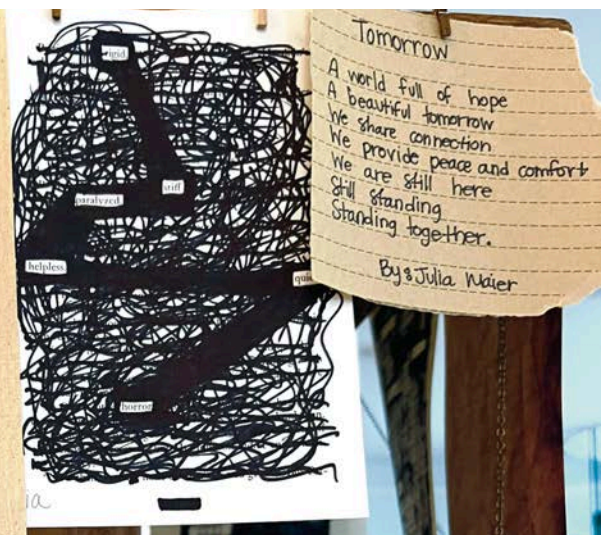 rigid
stiff
paralyzed
helpless
horror
Tomorrow
A world full of hope
A beautiful tomorrow
We share connection
We provide peace and comfort
We are still here
Still standing
Standing together.
By: Julia Waier